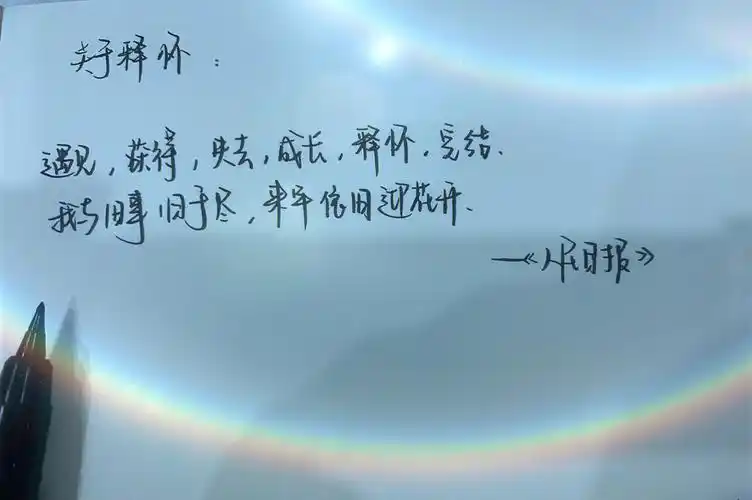 关于释怀：
遇见，获得，失去，成长，释怀，完结.
我与旧事归于尽，来年依旧迎花开.
—《人民日报》